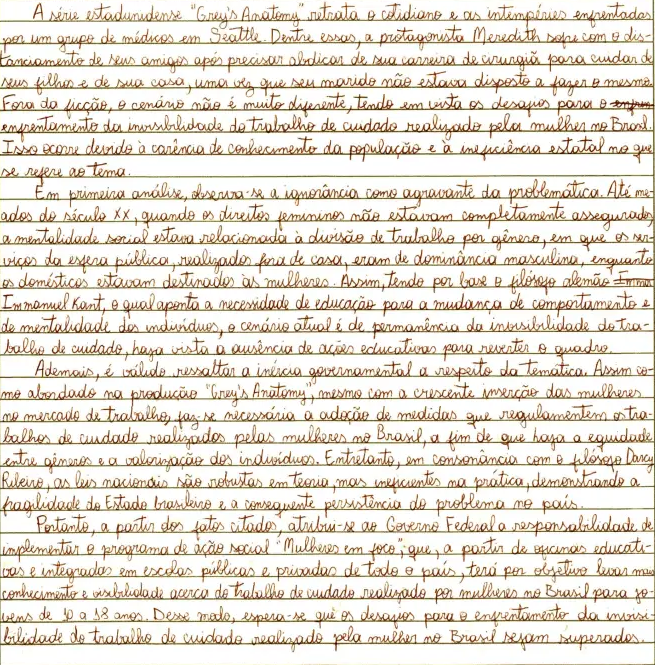 A série estadunidense "Grey's Anatomy" retrata o cotidiano e as intempéries enfrentadas
por um grupo de médicos em Seattle. Dentre essas, a protagonista Meredith sofre com o dis-
tanciamento de seus amigos após precisar abdicar de sua carreira de cirurgiã para cuidar de
seus filhos e de sua casa, uma vez que seu marido não estava disposto a fazer o mesmo.
Fora da ficção, o cenário não é muito diferente, tendo em vista os desafios para o
enfrentamento da invisibilidade do trabalho de cuidado realizado pela mulher no Brasil.
Isso ocorre devido à carência de conhecimento da população e à ineficiência estatal no que
se refere ao tema.
Em primeira análise, observa-se a ignorância como agravante da problemática. Até me-
ados do século XX, quando os direitos femininos não estavam completamente assegurados,
a mentalidade social estava relacionada à divisão de trabalho por gênero, em que os ser-
viços da esfera pública, realizados fora de casa, eram de dominância masculina, enquanto
os domésticos estavam destinados às mulheres. Assim, tendo por base o filósofo alemão Imma
Immanuel Kant, o qual aponta a necessidade de educação para a mudança de comportamento e
de mentalidade dos indivíduos, o cenário atual é de permanência da invisibilidade do tra-
balho de cuidado, haja vista a ausência de ações educativas para reverter o quadro.
Ademais, é válido ressaltar a inércia governamental a respeito da temática. Assim co-
mo abordado na produção "Grey's Anatomy", mesmo com a crescente inserção das mulheres
no mercado de trabalho, faz-se necessária a adoção de medidas que regulamentem o tra-
balhos de cuidado realizados pelas mulheres no Brasil, a fim de que haja a equidade
entre gêneros e a valorização dos indivíduos. Entretanto, em consonância com o filósofo Darcy
Ribeiro, as leis nacionais são robustas em teoria, mas ineficientes na prática, demonstrando a
fragilidade do Estado brasileiro e a consequente persistência do problema no país.
Portanto, a partir dos fatos citados, atribui-se ao Governo Federal a responsabilidade de
implementar o programa de ação social "Mulheres em foco", que, a partir de oficinas educati-
vas e integradas em escolas públicas e privadas de todo o país, terá por objetivo levar mais
conhecimento e visibilidade acerca do trabalho de cuidado realizado por mulheres no Brasil para jo-
vens de 10 a 18 anos. Desse modo, espera-se que os desafios para o enfrentamento da invisi-
bilidade do trabalho de cuidado realizado pela mulher no Brasil sejam superados.